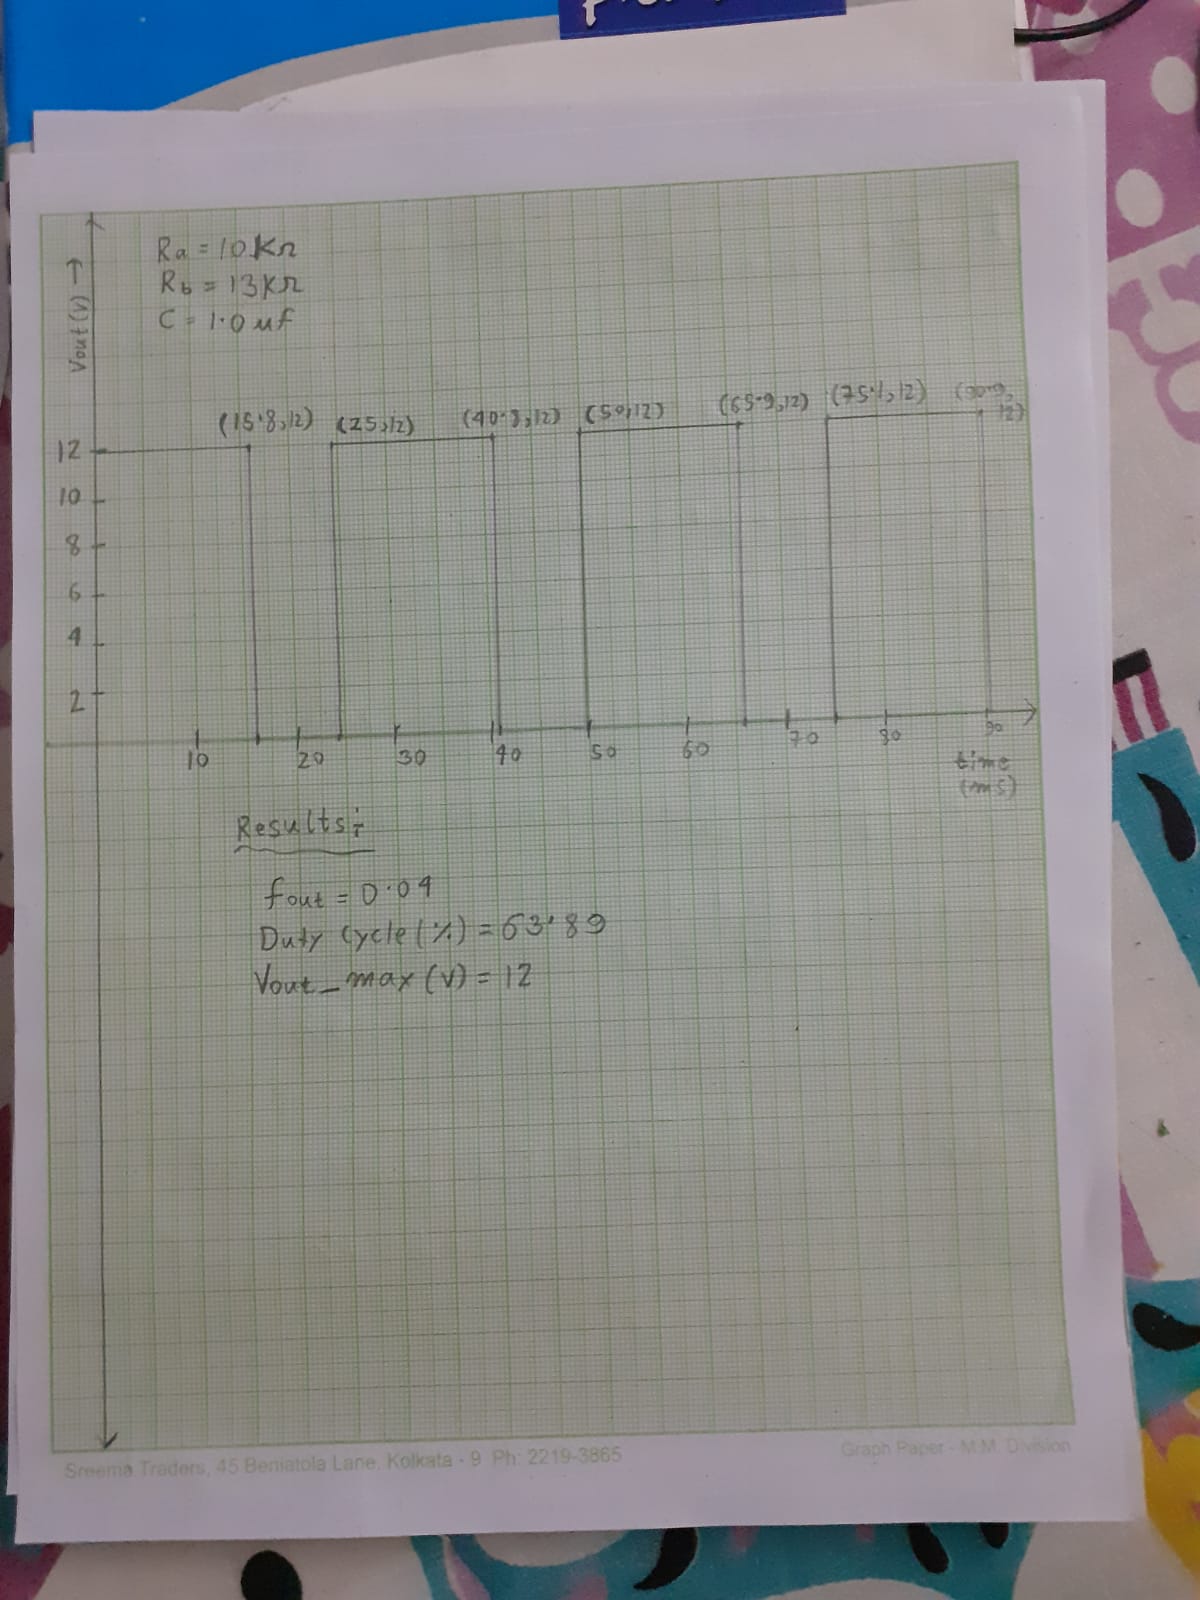 Ra = 10KΩ
Rb = 13KΩ
C = 1.0 uf
Vout (V) →
(15.8,12) (25,12) (40.8,12) (50,12) (65.9,12) (75.1,12) (90.9,
12)
12
10
8
6
4
2
10 20 30 40 50 60 70 80 90
time
(ms)
Results:-
fout = 0.04
Duty Cycle (%) = 63.89
Vout_max (V) = 12
Sreema Traders, 45 Beniatola Lane, Kolkata - 9 Ph: 2219-3865
Graph Paper - M.M. Division